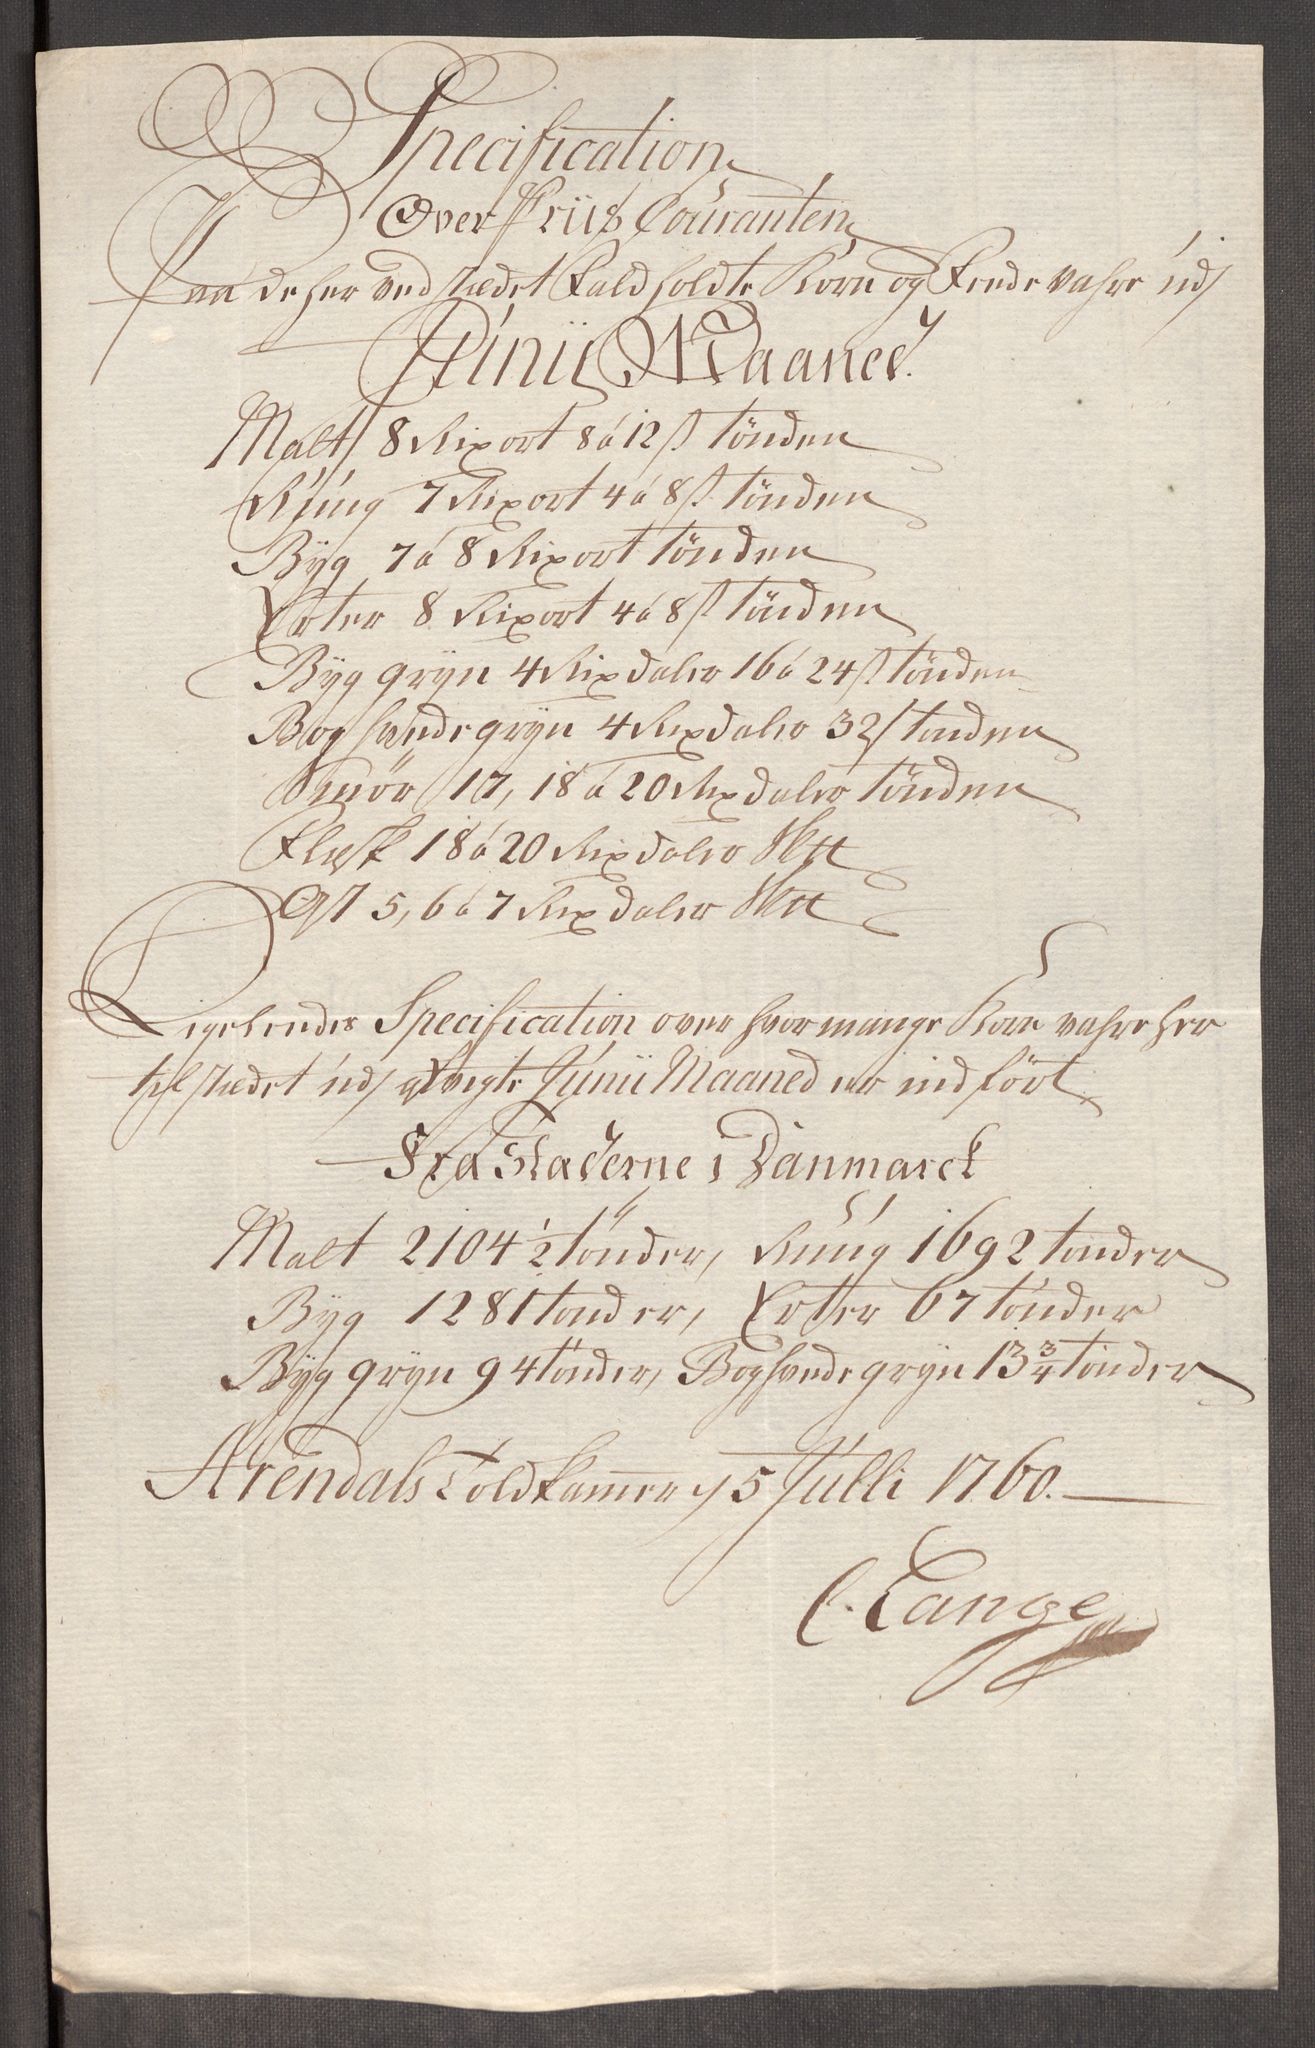 Specification
Over Priis Couranten
Paa de her ved stædet Fald holdte Korn og Fede vahre udj
Junii Maaned.
Malt 8 Rixort 8 à 12 s tönden
Rúúg 7 Rixort 4 à 8 s tönden
Byg 7 à 8 Rixort tönden
Erter 8 Rixort 4 à 8 s tönden
Byg gryn 4 Rixdaler 16 à 24 s tönden
Boghvede gryn 4 Rixdaler 32 s tönden
Smör 17, 18 à 20 Rixdaler tönden
Flesk 18 à 20 Rixdaler
Ost 5, 6 à 7 Rixdaler
Ligeledes Specification over hvor mange Korn vahre her
til stædet udj Junii Maaned er indfört
Fra Stæderne i Danmarck
Malt 2104 1/2 tönder, Rúúg 1692 tönder
Byg 1281 tönder, Erter 67 tönder
Byg gryn 94 tönder, Boghvede gryn 13 3/4 tönder
Arendals Toldkamer 5 Julli 1760.
C. Lange